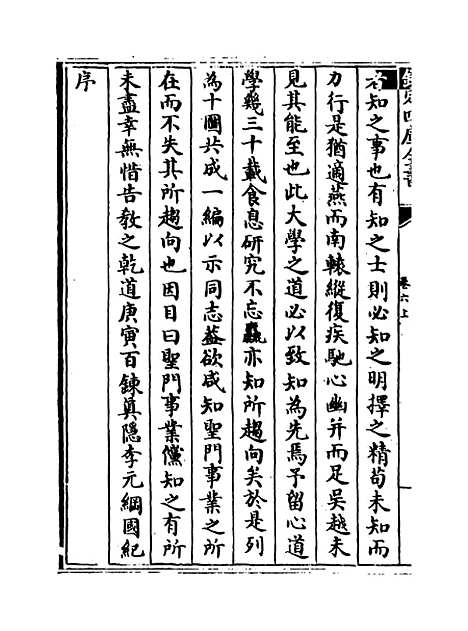 欽定四庫全書
卷六上
者知之事也有知之士則必知之明擇之精苟未知而
力行是猶適燕而南轅縱復疾馳心幽并而足吳越未
見其能至也此大學之道必以致知為先焉予留心道
學幾三十載食息研究不忘麤亦知所趨向矣於是列
為十圖共成一編以示同志葢欲咸知聖門事業之所
在而不失其所趨向也因目曰聖門事業儻知之有所
未盡幸無惜告敎之乾道庚寅百鍊真隠李元綱國紀
序